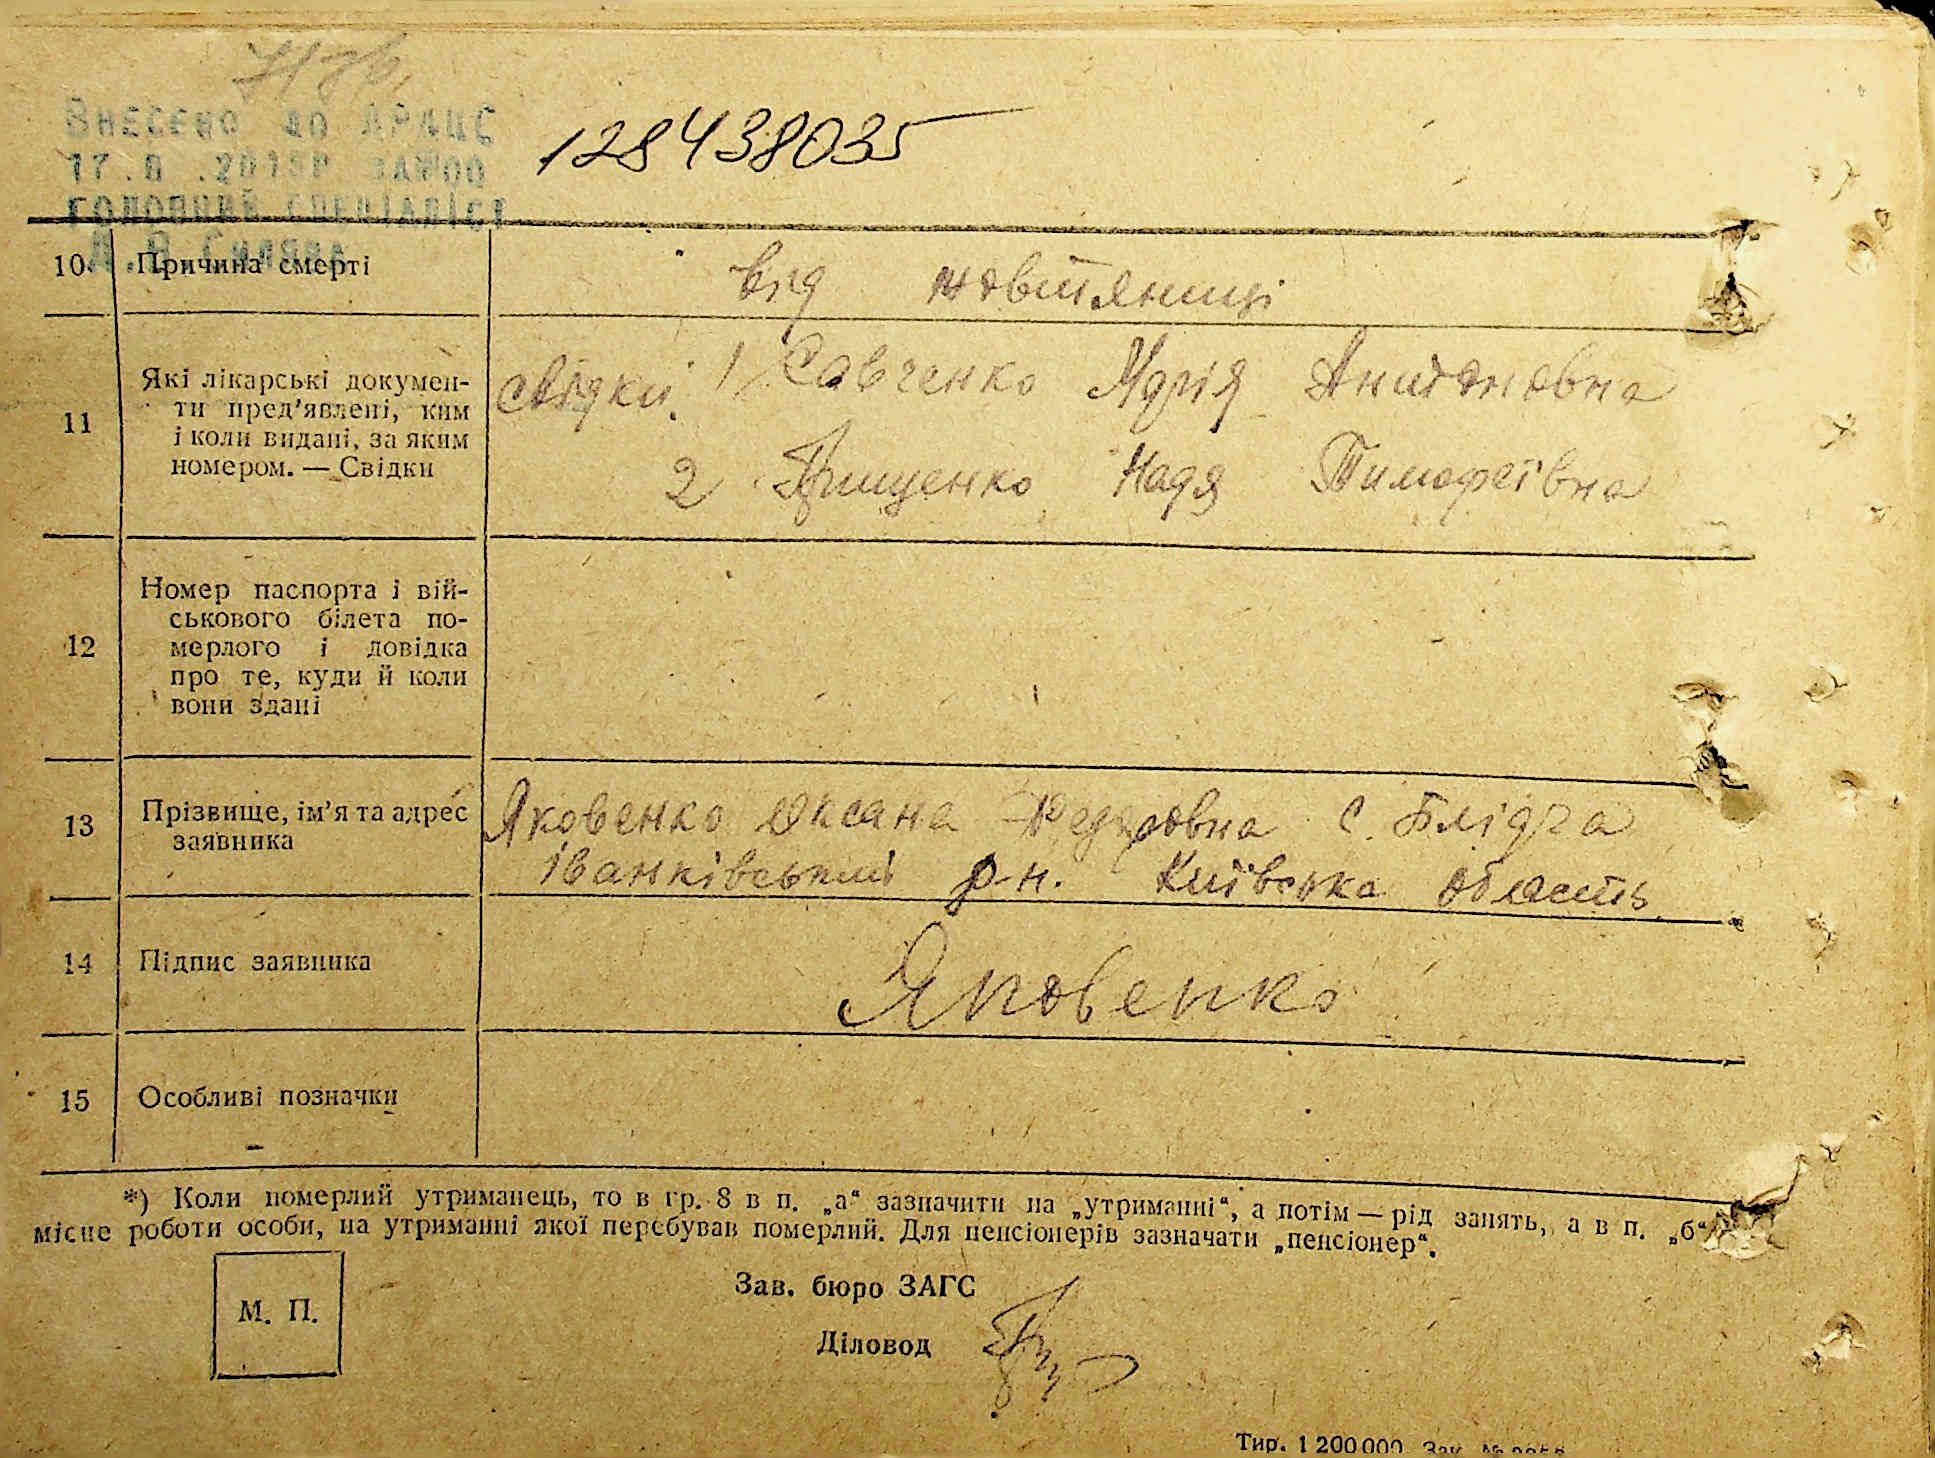 Внесено до ДРАЦС
128438035
головний спеціаліст
10. Причина смерті
від жовтяниці
11 Які лікарські докумен-
ти пред'явлені, ким
і коли видані, за яким
номером. — Свідки
свідки 1 Савченко Марія Антоновна
2 Грищенко Надя Тимофеївна
12 Номер паспорта і вій-
ськового білета по-
мерлого і довідка
про те, куди й коли
вони здані
13 Прізвище, ім'я та адрес
заявника
Яковенко Оксана Федоровна с. Блідча
іванківський р-н. Київська область
14 Підпис заявника
Яковенко
15 Особливі позначки
*) Коли померлий утриманець, то в гр. 8 в п. „а“ зазначити на „утриманні“, а потім — рід занять, а в п. „б“
місце роботи особи, на утриманні якої перебував померлий. Для пенсіонерів зазначати „пенсіонер“.
М. П.
Зав. бюро ЗАГС
Діловод
Тир. 1 200 000 Зак. №